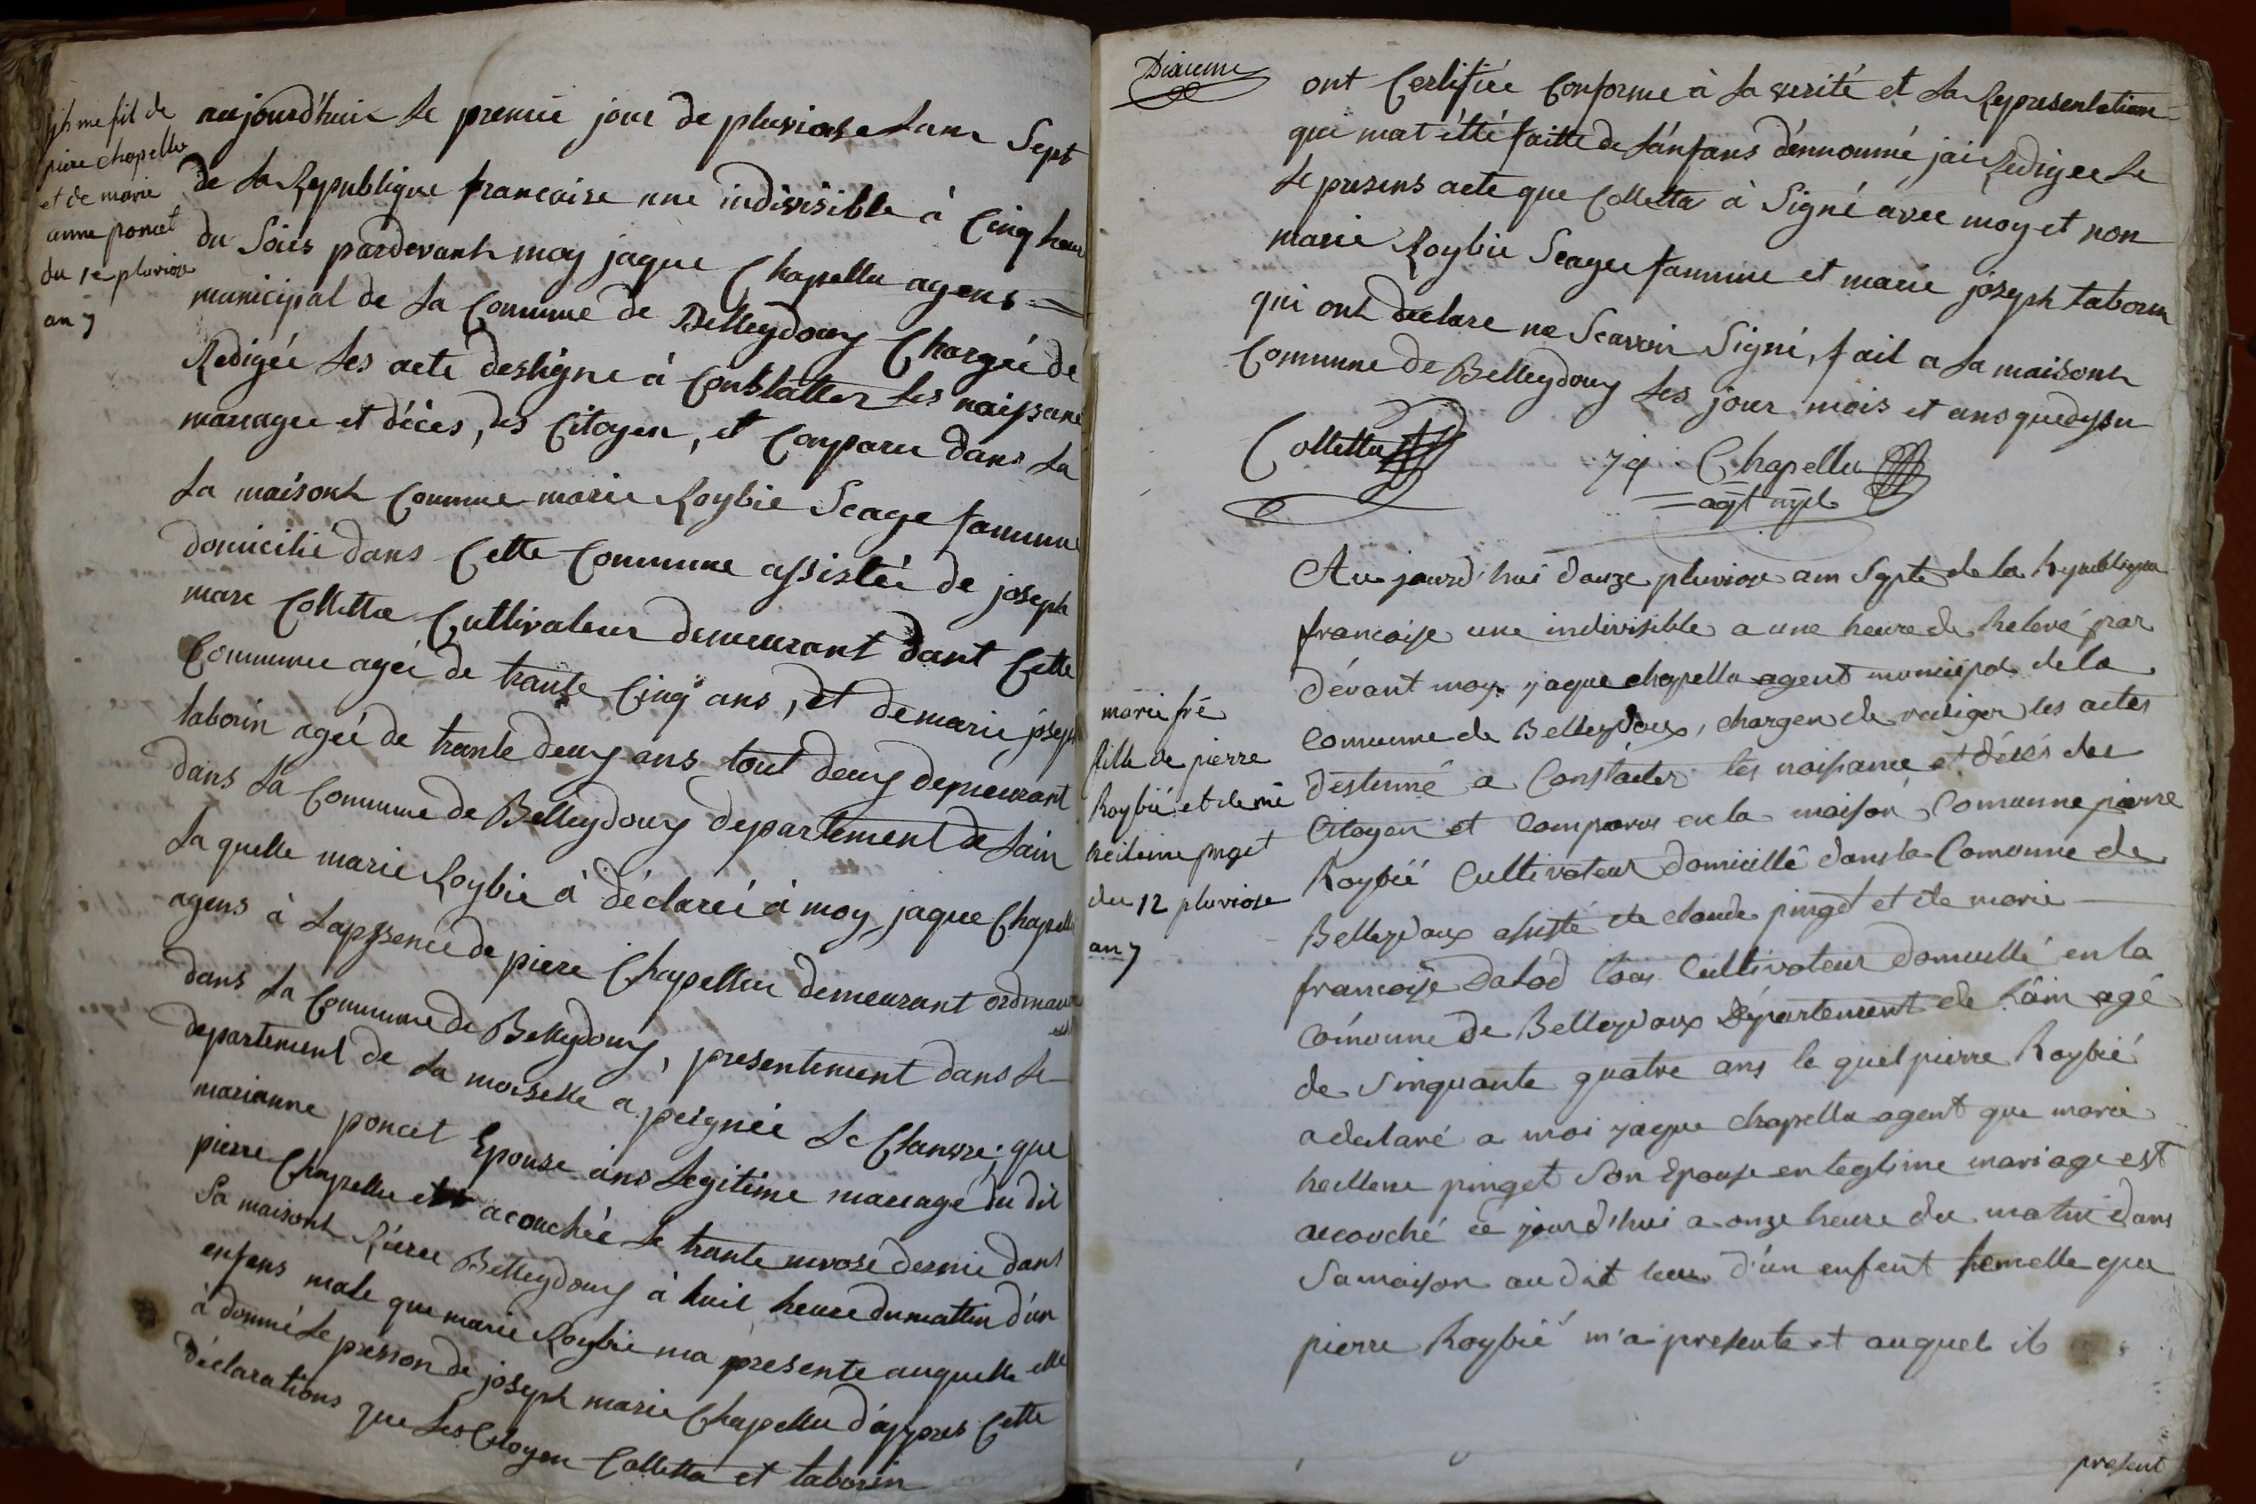 jph me fil de
piere chapellu
et de marie
anne poncet
du 1e pluviose
an 7
aujourd'huis le premié jour de pluviose lanne Sept
de la Republique francaise une indivisible à Cinq heure
du Soirs pardevant moy jaque Chapellu agens =
municipal de la Commune de Belleydoux Chargée de
Redigée les acte destigné à Constatter les naissance
mariagee et déces, des Citoyen, et Comparu dans la
la maisont Commune marie Roybie Seage famme
domicilié dans Cette Commune assistée de joseph
marie Colletta Cultivateur demeurant dant Cette
Commune ageé de trante Cinq ans, et de marie joseph
taborin ageé de trante deux ans tout deux demeurant
dans la Commune de Belleydoux departement de Lain
la quelle marie Roybie à déclareé à moy jaque Chapellu
agens à Lapssence de piere Chapellu demeurant ordinair
dans la Commune de Belleydoux, presentement dans le
departement de la moiselle a peignée le Chanvre; que
marianne poncet Epouse ans legitime mariage du dit
pierre Chapellu acouchée le trante nivose dernié dans
sa maisont Riere Belleydoux à huit heure du mattin d'un
enfans male que marie Roybie ma présente auquelle elle
à donné le prenon de joseph marie Chapellu d'appres Cette
déclarations que les Citoyen Colletta et taborin
Dixieme
ont Certifiée Conforme à la verité et la Representation
qui mat étté faitte de lénfans dénnommé jai Redigee le
le presens acte que Colletta à Signé avec moy et non
marie Roybie Seagee famme et marie joseph taborin
qui ont declare ne Scavoir Signé, fait a la maisont
Commune de Belleydoux les jour mois et ans que dessu
Colletta
jq Chapellu
= agt mpl
marie fse
fille de pierre
Roybié et de mie
heileine pinget
du 12 pluviose
an 7
Aujourd'hui douze pluviose ann Septe de la Republique
francoise une indivisible a une heure de Relevé par
dévant moy jaque chapellu agent municipal de la
Comunne de Belleydoux, chargen de rediger les actes
destinné a Constater les naissance et décés des
Citoyen et Comparus en la maison Comunne pierre
Roybié Cultivateur domicillé dans la Comunne de
Belleydoux assisté de claude pinget et de marie
francoise Dalod tous Cultivateur domicillé en la
Comunne de Belleydoux Département de Lâin agé
de Sinquante quatre ans le quel pierre Roybié
a declaré a moi jaque chapellu agent que marie
heillene pinget Son Epouse en legtime mariage est
accouché ce jourd'hui a onze heure du matin dans
Sa maison au dit lieu d'un enfent femelle que
pierre Roybié m'a presente et auquel il
present